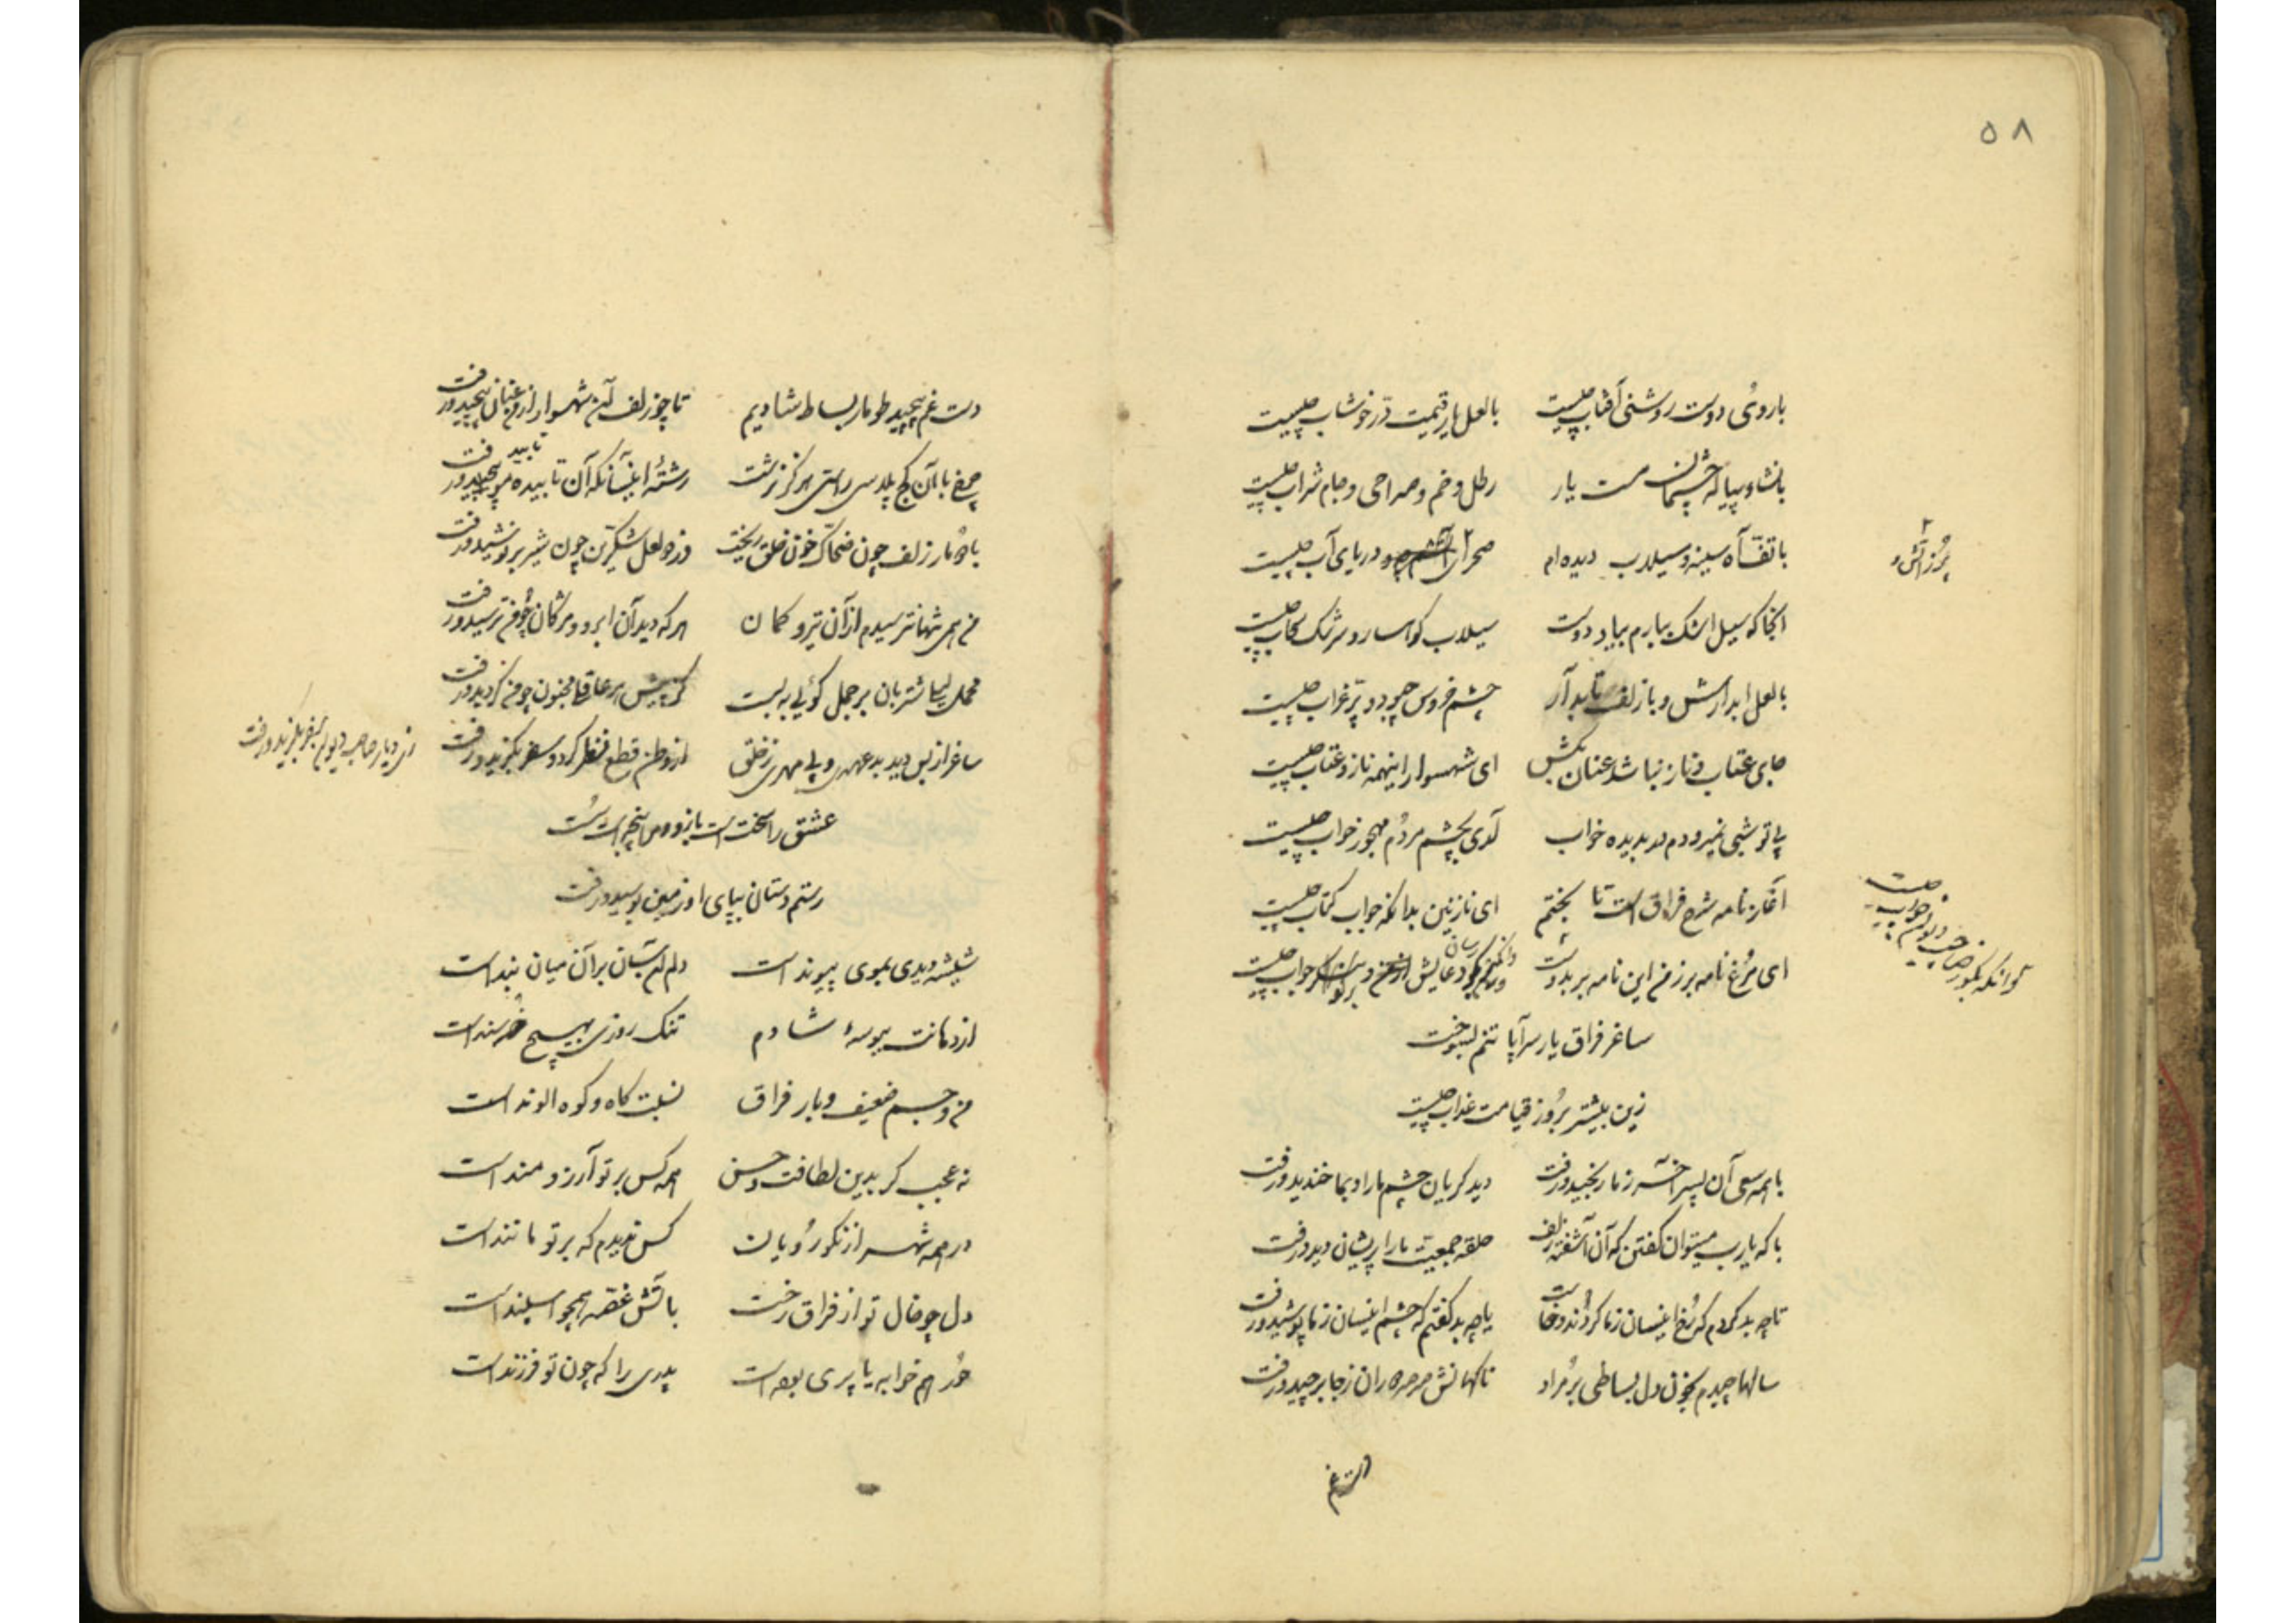 ۵۸
با روی دوست روشنی آفتاب چیست
با لعل یار قیمت درّ خوشاب چیست
با نشاء پیاله چشمان مست یار
رطل و خم و صراحی و جام شراب چیست
با تفّ آه سینه و سیلاب دیده‌ام
صحرای و دریای آب چیست
پُر ز آتش و
آنجا که سیل اشک ببارم بیاد دوست
سیلاب کوهسار و سرشک سحاب چیست
با لعل آبدارش و با زلف تابدار
چشم خروس چبود و پرّ غراب چیست
جای عتاب و ناز نباشد عنان بکش
ای شهسوار اینهمه ناز و عتاب چیست
بی تو شبی نمیرودم در بدیده خواب
آری بچشم مردم مهجور خواب چیست
آغاز نامه شرح فراق است تا بختم
ای نازنین بدانکه جواب کتاب چیست
ای مرغ نامه بر ز من این نامه بر بدوست
جواب چیست
ساغر فراق یار سراپا تنم بسوخت
زین بیشتر بروز قیامت عذاب چیست
با همه سعی آن پسر آخر ز ما رنجید و رفت
دید گریان چشم ما را و بما خندید و رفت
با که یارب میتوان گفتن که آن آشفته زلف
حلقه جمعیت ما را پریشان دید و رفت
تا چه بد کردم که رخ اینسان ز ما گرداند و خاست
یا چه بد گفتم که چشم اینسان ز ما پوشید و رفت
سالها چیدم بخون دل بساطی بر مراد
ناگهانش صرصر دوران ز جا برچید و رفت
دست غم
دست غم پیچید طومار بساط شادیم
تا چو زلف آن شهسوار از ره عنان پیچید و رفت
چرخ با آن کج پلاسی راستی هرگز نرشت
رشتهٔ اینسانکه آن تابیده مو پیچید و رفت
تابید
با دو مار زلف چون ضحّاک خون خلق ریخت
وز دو لعل شکّرین چون شیر بر نوشید و رفت
من همی تنها نترسیدم از آن تیر و کمان
هر که دید آن ابرو و مژگان چو من ترسید و رفت
محمل لیلی شتربان بر جمل گوئی ببست
کز پیش هر عاقلی مجنون چو من گردید و رفت
ساغر از بس دید بد عهدی و بی مهری ز خلق
از وطن قطع نظر کرد و سفر بگزید و رفت
عشق را سخت است بازو و پنجه است
رستم دستان بپای او زمین بوسید و رفت
شیشه دیدی بموی پیوند است
دلم اینسان بر آن میان بند است
از دهانت ببوسهٔ شادم
تنگ روزی بهیچ خرسند است
من و جسم ضعیف و بار فراق
نسبت کاه و کوه الوند است
نه عجب گر بدین لطافت و حسن
همه کس بر تو آرزومند است
در همه شهر از نکورویان
کس ندیدم که بر تو مانند است
دل چو خال تو از فراق رخت
باتش غصه همچو اسپند است
حُر هم خوابه یا پری بوده است
پدری را که چون تو فرزند است